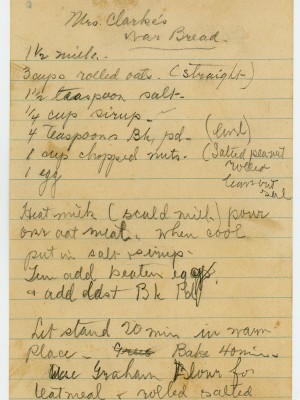 Mrs. Clarke's
War Bread.
1 1/2 milk.
3 cups rolled oats. (straight)
1 1/2 teaspoon salt-
1/4 cup sirup-
4 teaspoons Bk, pd.
1 cup chopped nuts. (Salted peanut
rolled
leave out
salt
1 egg
Heat milk (scald milk) pour
over oat meal. when cool
put in salt & sirup-
Then add beaten egg.
& add dst Bk Pd
Let stand 20 min in warm
place - Bake 40 min.
Use Graham flour for
oatmeal & rolled salted